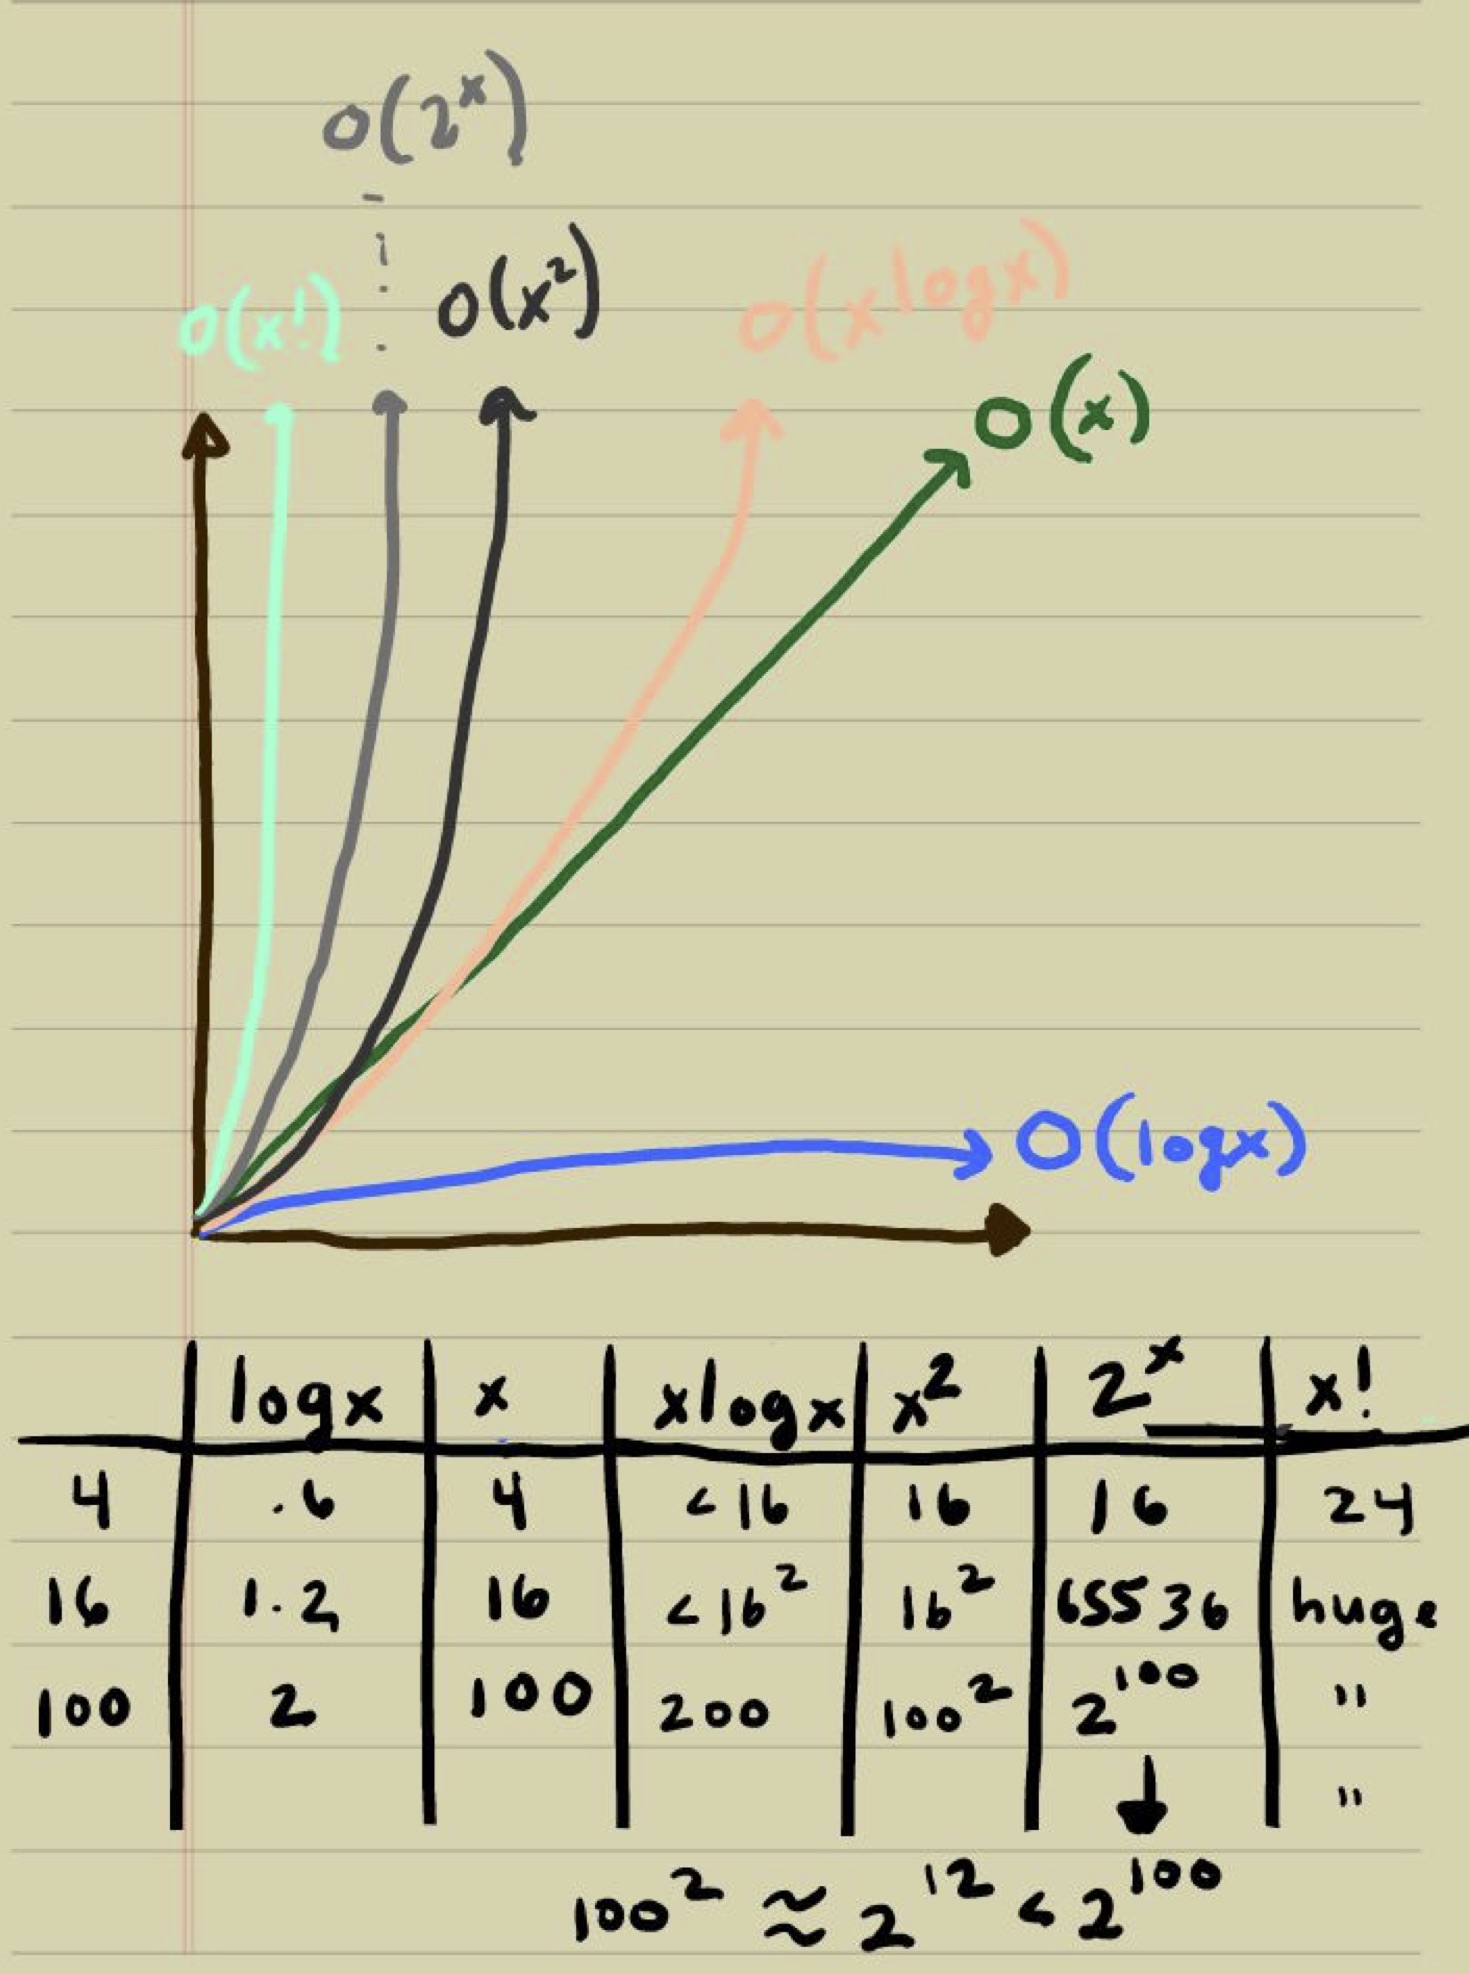 O(2^x)
O(x!) O(x²) O(x log x)
O(x)
O(log x)
log x x x log x x² 2^x x!
4 .6 4 <16 16 16 24
16 1.2 16 <16² 16² 65536 huge
100 2 100 200 100² 2^100 "
"
100² ≈ 2^12 < 2^100